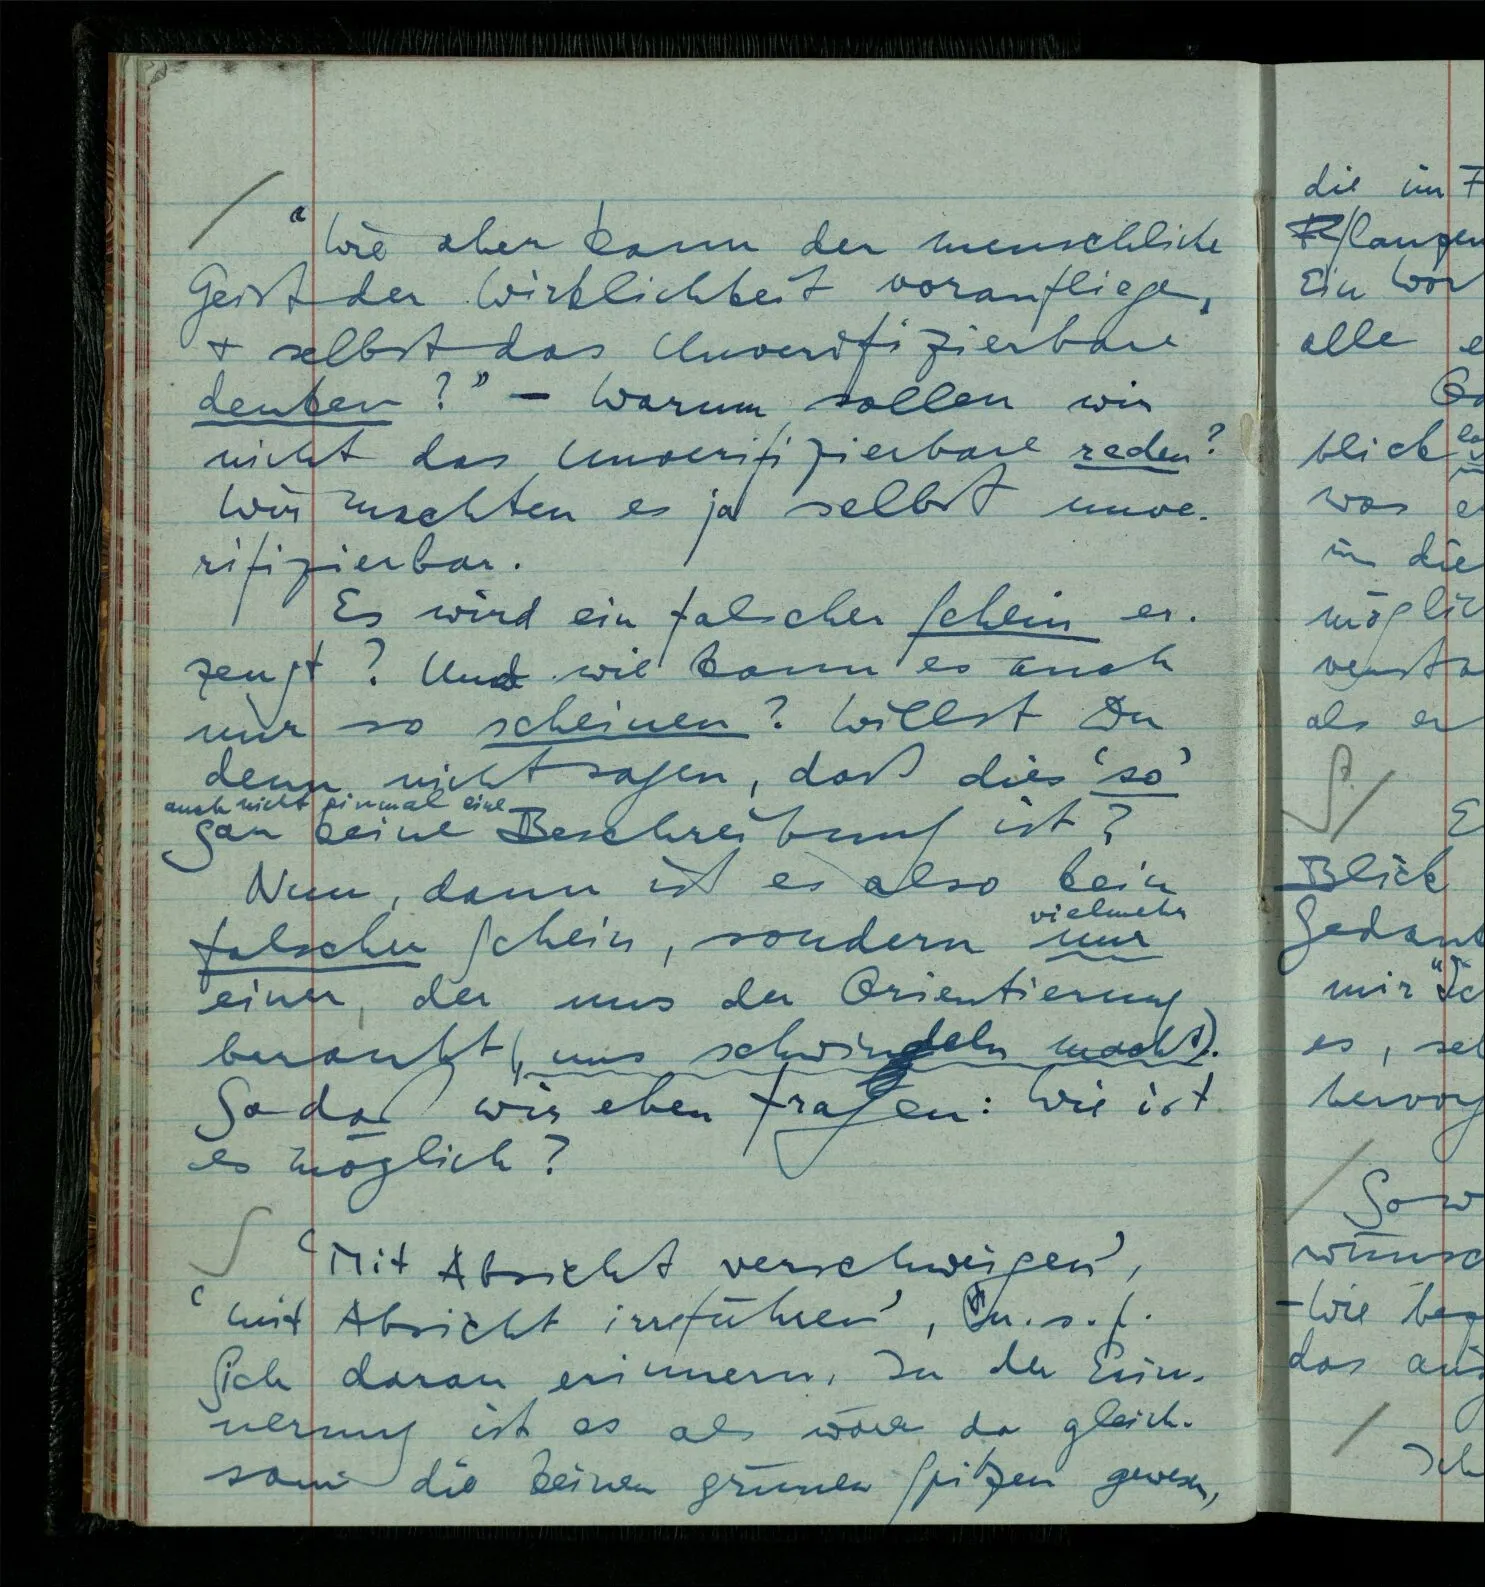 "Wie aber kann der menschliche
Geist der Wirklichkeit voranfliegen,
+ selbst das Unverifizierbare
denken?" – Warum sollen wir
nicht das Unverifizierbare reden?
Wir machten es ja selbst unve-
rifizierbar.
Es wird ein falscher Schein er-
zeugt? Und wie kann es auch
nur so scheinen? Willst Du
denn nicht sagen, daß dies 'so'
auch nicht einmal eine
gar keine Beschreibung ist?
Nun, dann ist es also kein
vielmehr
falscher Schein, sondern nur
einer, der uns der Orientierung
beraubt (, uns schwindeln macht).
So daß wir eben fragen: Wie ist
es möglich?
'Mit Absicht verschweigen',
'mit Absicht irreführen', u.s.f.
Sich daran erinnern. In der Erin-
nerung ist es als wäre da gleich-
sam die keinen grünen Spitzen gewesen,
die im
Ein
alle
blick
was
in die
möglic
als er
Blick
Gedank
mir
es, sel
hervor
So w
wünsc
– Wie
das
Ich